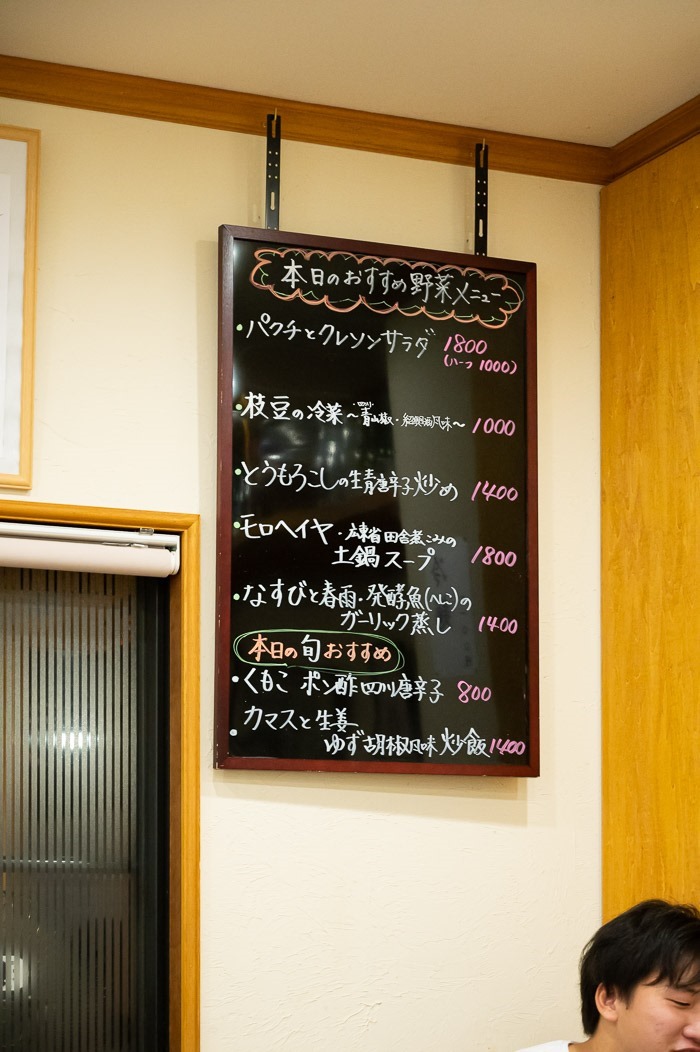 本日のおすすめ野菜メニュー
・パクチとクレソンサラダ 1800
(ハーフ 1000)
・枝豆の冷菜 〜四川青山椒・紹興酒風味〜 1000
・とうもろこしの生青唐辛子炒め 1400
・モロヘイヤ・広東省田舎煮こみの
土鍋スープ 1800
・なすびと春雨・発酵魚(へしこ)の
ガーリック蒸し 1400
本日の旬おすすめ
・くもこ ポン酢四川唐辛子 800
・カマスと生姜
ゆず胡椒風味炒飯 1400